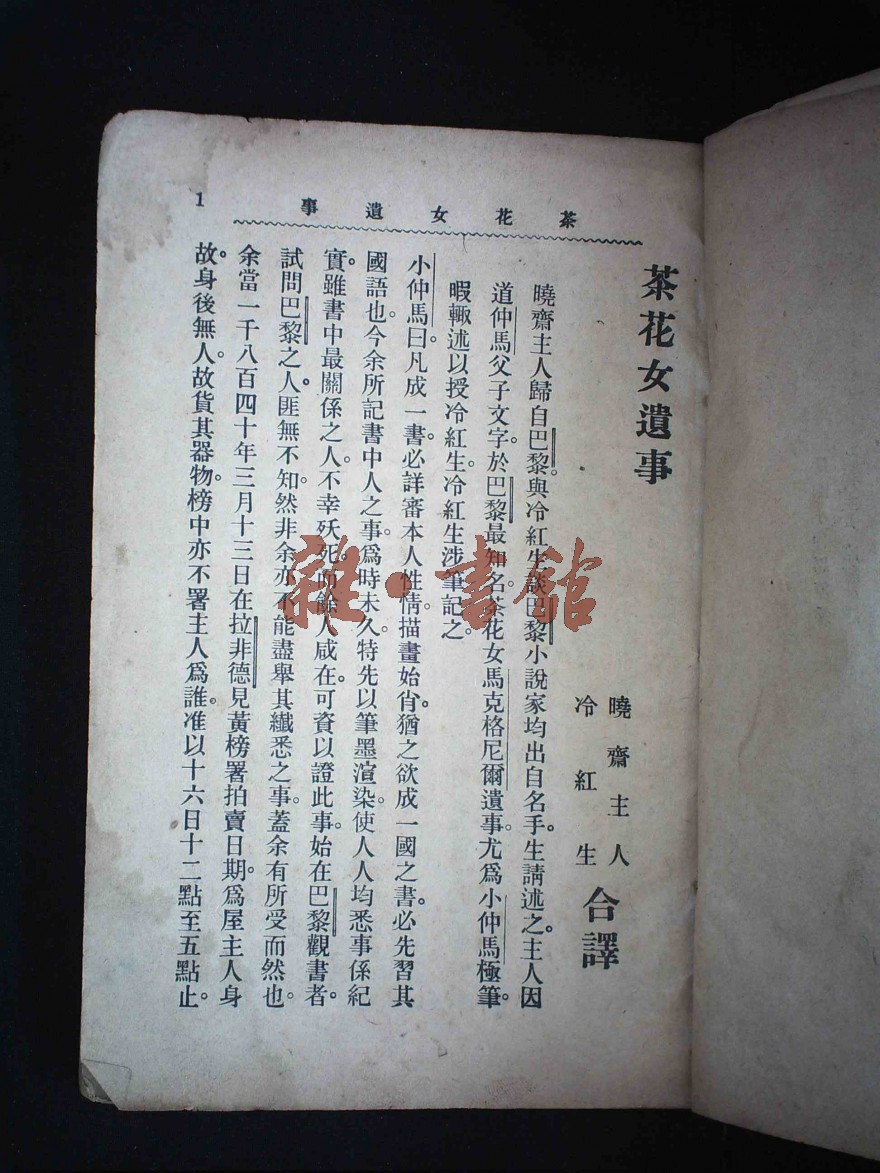 茶花女遺事
1
茶花女遺事
曉齋主人
冷紅生
合譯
曉齋主人歸自巴黎。與冷紅生談巴黎小說家均出自名手。生請述之。主人因
道仲馬父子文字。於巴黎最知名。茶花女馬克格尼爾遺事。尤爲小仲馬極筆。
暇輒述以授冷紅生。冷紅生涉筆記之。
小仲馬曰。凡成一書。必詳審本人性情。描畫始肖。猶之欲成一國之書。必先習其
國語也。今余所記書中人之事。爲時未久。特先以筆墨渲染。使人人均悉事係紀
實。雖書中最關係之人。不幸殀死。而餘人咸在。可資以證此事。始在巴黎觀書者。
試問巴黎之人。匪無不知。然非余亦不能盡舉其纖悉之事。蓋余有所受而然也。
余當一千八百四十年三月十三日在拉非德見黃榜署拍賣日期。爲屋主人身
故。身後無人。故貨其器物。榜中亦不署主人爲誰。准以十六日十二點至五點止。
雜·書館